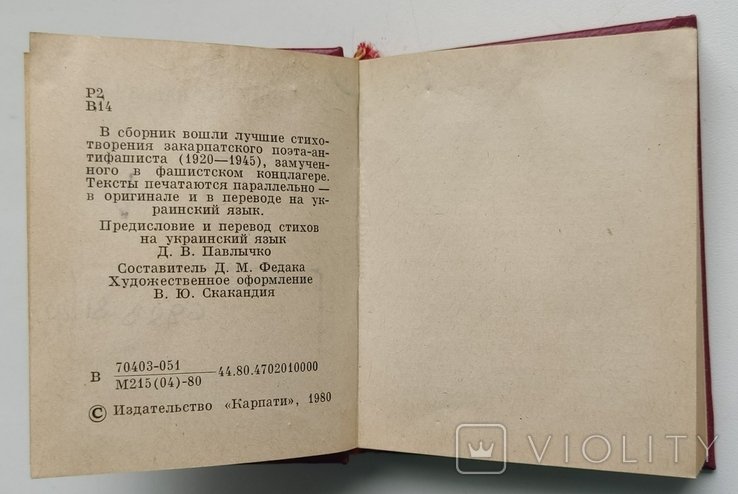 Р2
В14
В сборник вошли лучшие стихо-
творения закарпатского поэта-ан-
тифашиста (1920—1945), замучен-
ного в фашистском концлагере.
Тексты печатаются параллельно —
в оригинале и в переводе на ук-
раинский язык.
Предисловие и перевод стихов
на украинский язык
Д. В. Павлычко
Составитель Д. М. Федака
Художественное оформление
В. Ю. Скакандия
В 70403-051 44.80.4702010000
М215(04)-80
© Издательство «Карпати», 1980
VIOLITY